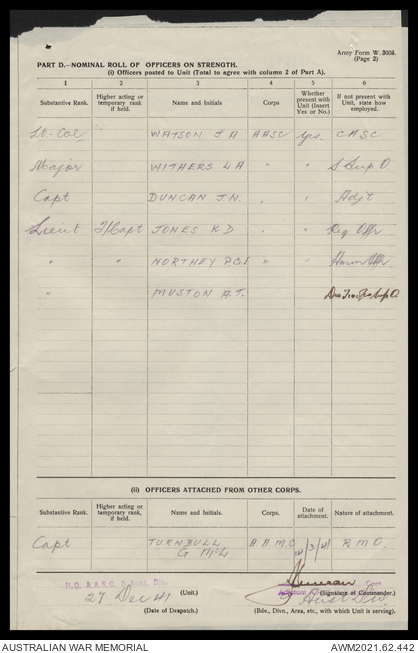 Army Form W. 3008.
(Page 2)
PART D.—NOMINAL ROLL OF OFFICERS ON STRENGTH.
(i) Officers posted to Unit (Total to agree with column 2 of Part A).
1 2 3 4 5 6
Substantive Rank. Higher acting or temporary rank if held. Name and Initials Corps Whether present with Unit (Insert Yes or No.) If not present with Unit, state how employed.
Lt-Col WATSON J A AASC Yes. CASC
Major WITHERS L A " " S Sup O.
Capt DUNCAN J.N. " " Adjt
Lieut T/Capt JONES K D " " Req Offr
" " NORTHEY P.G.E " " Offr.
" MUSTON A.T. Sup O.
(ii) OFFICERS ATTACHED FROM OTHER CORPS.
Substantive Rank. Higher acting or temporary rank, if held. Name and Initials. Corps. Date of attachment. Nature of attachment.
Capt TURNBULL G McL A.A.M.C /3/41 R.M.O.
H.Q. A.A.S.C. Aust. Div. (Unit.) Duncan Capt
27 Dec 41 (Signature of Commander.)
Aust Div
(Date of Despatch.) (Bde., Divn., Area, etc., with which Unit is serving).
AUSTRALIAN WAR MEMORIAL AWM2021.62.442